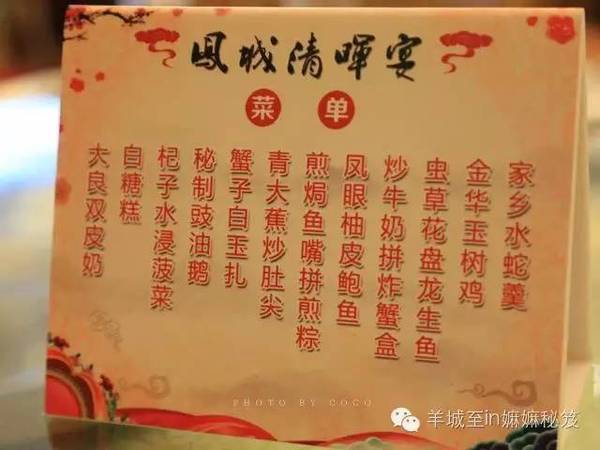 凤城清晖宴
菜单
家乡水蛇羹
金华玉树鸡
虫草花盘龙生鱼
炒牛奶拼炸蟹盒
凤眼柚皮鲍鱼
煎焗鱼嘴拼煎粽
青大蕉炒肚尖
蟹子白玉扎
秘制豉油鹅
杞子水浸菠菜
白糖糕
大良双皮奶
PHOTO BY COCO
羊城至in嫲嫲秘笈